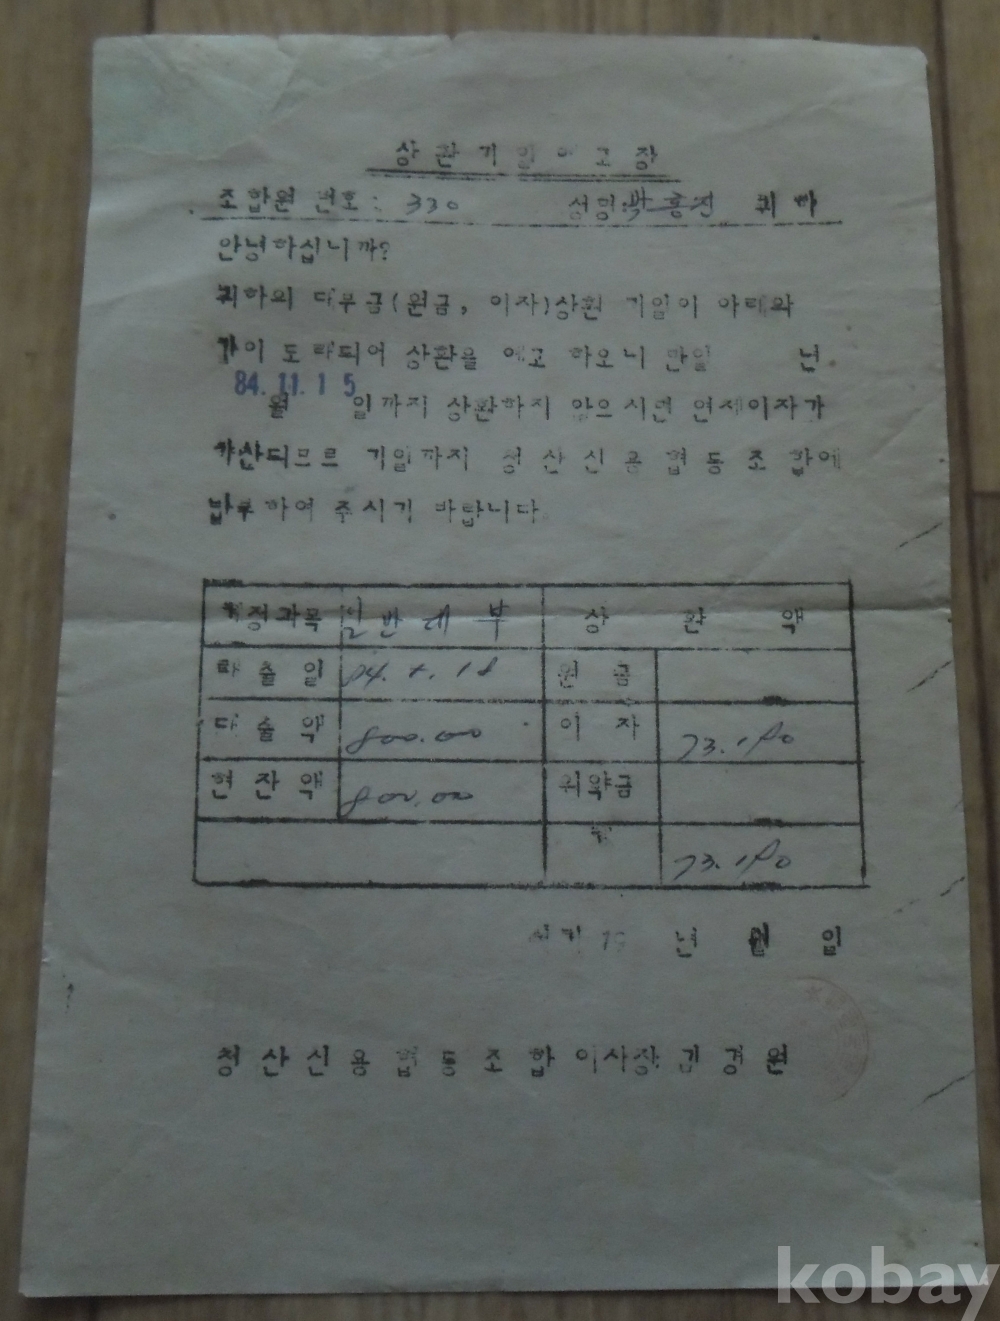 상환기일예고장
조합원 번호: 330 성명: 박흥진 귀하
안녕하십니까?
귀하의 대부금(원금, 이자)상환 기일이 아래와
같이 도래되어 상환을 예고 하오니 만일 년
84. 11. 15
월 일까지 상환하지 않으시면 연체이자가
가산되므로 기일까지 청산신용협동조합에
납부하여 주시기 바랍니다.
계정과목 일반대부 상 환 액
대출일 원금
대출액 800.00 이자 73.190
현잔액 800.00 위약금
73.190
서기 19 년 월 일
청산신용협동조합이사장김경원
kobay